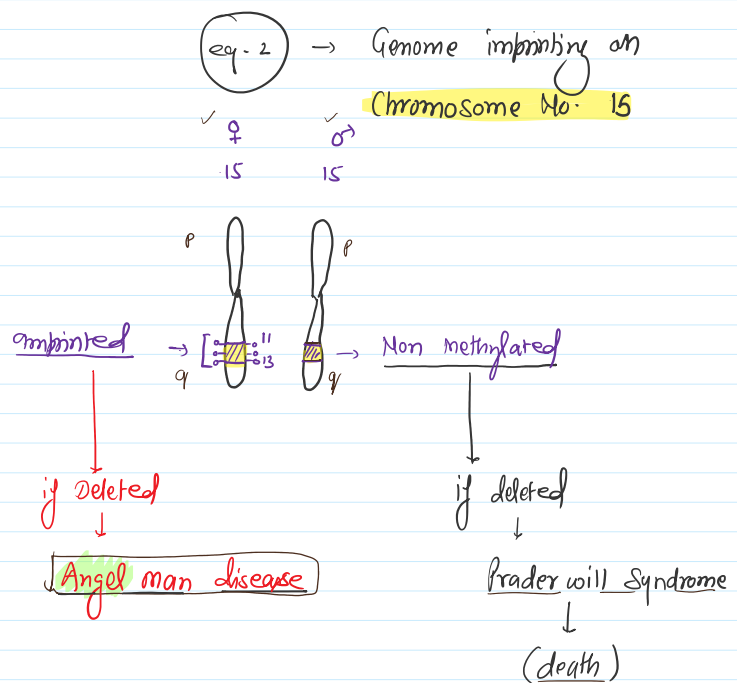 eq. 2 → Genome imprinting on
Chromosome No. 15
✓ ♀ ✓ ♂
15 15
p p
imprinted → 11 → Non methylated
13
q q
if Deleted if deleted
↓ ↓
Angel man disease Prader will Syndrome
↓
(death)